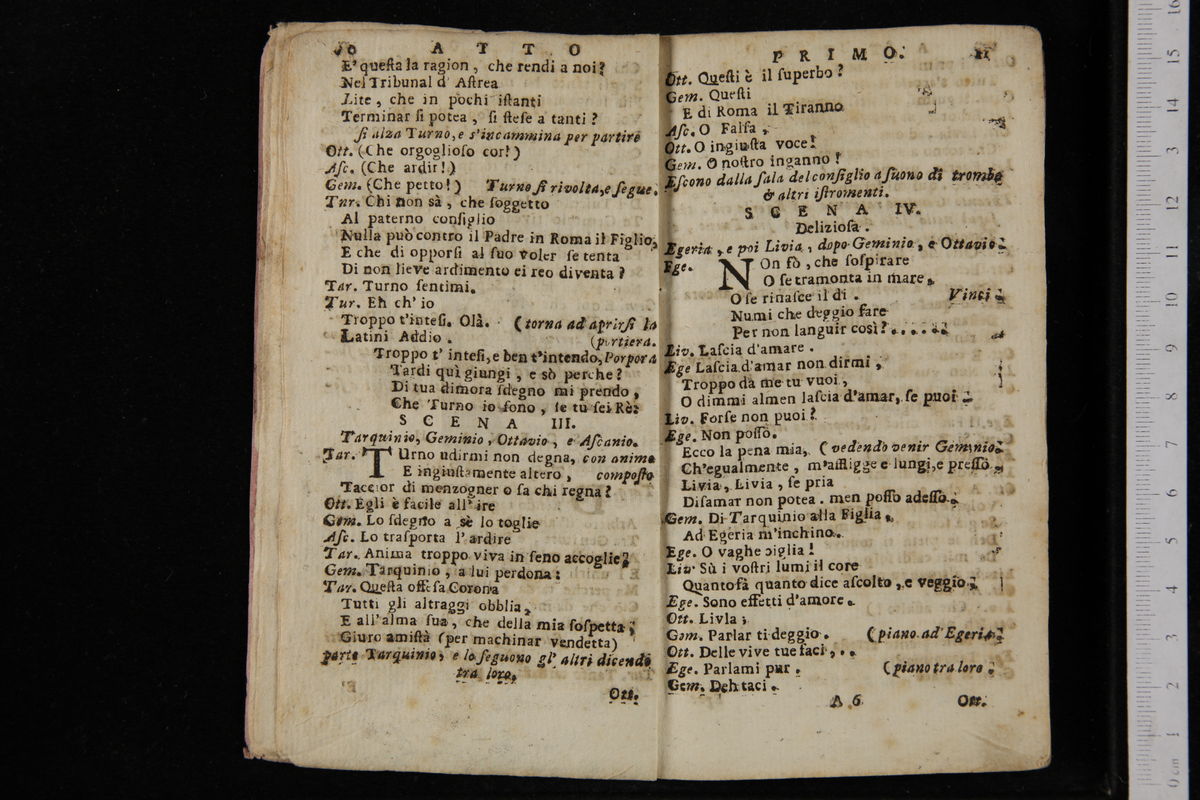 10 A T T O
E' queſta la ragion, che rendi a noi?
Nel Tribunal d' Aſtrea
Lite, che in pochi iſtanti
Terminar ſi potea, ſi ſteſe a tanti?
ſi alza Turno, e s'incammina per partire
Ott. (Che orgoglioſo cor!)
Aſc. (Che ardir!)
Gem. (Che petto!) Turno ſi rivolta, e ſegue.
Tur. Chi non sà, che ſoggetto
Al paterno conſiglio
Nulla può contro il Padre in Roma il Figlio;
E che di opporſi al ſuo voler ſe tenta
Di non lieve ardimento ei reo diventa?
Tar. Turno ſentimi.
Tur. Eh ch' io
Troppo t'inteſi. Olà. (torna ad aprirſi la
Latini Addio. (portiera.
Troppo t' inteſi, e ben t'intendo, Porpora
Tardi quì giungi, e sò perche?
Di tua dimora ſdegno mi prendo,
Che Turno io ſono, ſe tu ſei Rè:
S C E N A III.
Tarquinio, Geminio, Ottavio, e Aſcanio.
Tar. TUrno udirmi non degna, con animo
E ingiuſtamente altero, compoſto
Tacciar di menzogner oſa chi regna?
Ott. Egli è facile all' ire
Gem. Lo ſdegno a sè lo toglie
Aſc. Lo traſporta l' ardire
Tar. Anima troppo viva in ſeno accoglie;
Gem. Tarquinio, a lui perdona:
Tar. Queſta offeſa Corona
Tutti gli altraggi obblia,
E all'alma ſua, che della mia ſoſpetta;
Giuro amiſtà (per machinar vendetta)
parte Tarquinio, e lo ſeguono gl' altri dicendo
tra loro.
Ott.
P R I M O. 11
Ott. Queſti è il ſuperbo?
Gem. Queſti
E di Roma il Tiranno
Aſc. O Falſa,
Ott. O ingiuſta voce!
Gem. O noſtro inganno!
Eſcono dalla ſala del conſiglio a ſuono di trombe
& altri iſtromenti.
S C E N A IV.
Delizioſa.
Egeria, e poi Livia, dopo Geminio, e Ottavio.
Ege. NOn ſò, che ſoſpirare
O ſe tramonta in mare,
O ſe rinaſce il dì. Vinci
Numi che deggio fare
Per non languir così? ....
Liv. Laſcia d'amare.
Ege Laſcia d'amar non dirmi,
Troppo da me tu vuoi,
O dimmi almen laſcia d'amar, ſe puoi.
Liv. Forſe non puoi?
Ege. Non poſſo.
Ecco la pena mia, (vedendo venir Geminio.
Ch'egualmente, m'affligge e lungi, e preſſo.
Livia, Livia, ſe pria
Diſamar non potea. men poſſo adeſſo.
Gem. Di Tarquinio alla Figlia,
Ad Egeria m'inchino.
Ege. O vaghe ciglia!
Liv. Sù i voſtri lumi il core
Quanto fà quanto dice aſcolto, e veggio.
Ege. Sono effetti d'amore.
Ott. Livia;
Gem. Parlar ti deggio. (piano ad Egeria.
Ott. Delle vive tue faci,..
Ege. Parlami pur. (piano tra loro.
Gem. Deh taci.
A 6 Ott.